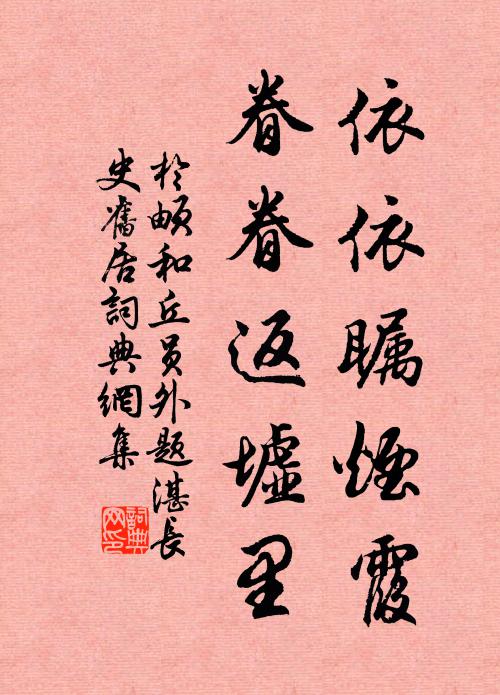 依依瞩煙霞
眷眷返墟里
於頔和丘員外題湛長
史舊居詞典網集
詞典
网印